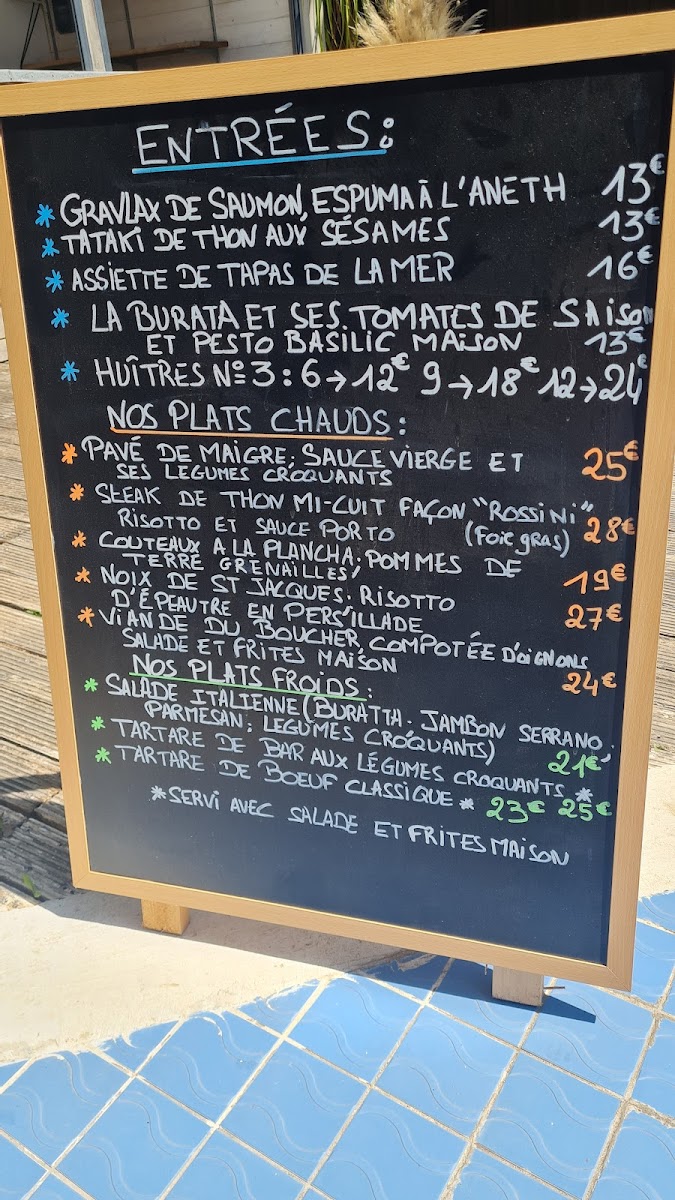 ENTRÉES:
* GRAVLAX DE SAUMON, ESPUMA À L'ANETH 13€
* TATAKI DE THON AUX SÉSAMES 13€
* ASSIETTE DE TAPAS DE LA MER 16€
* LA BURATA ET SES TOMATES DE SAISON
ET PESTO BASILIC MAISON 13€
* HUÎTRES Nº3 : 6→12€ 9→18€ 12→24€
NOS PLATS CHAUDS:
* PAVÉ DE MAIGRE, SAUCE VIERGE ET 25€
SES LEGUMES CROQUANTS
* STEAK DE THON MI-CUIT FAÇON "ROSSINI"
RISOTTO ET SAUCE PORTO (Foie gras) 28€
* COUTEAUX A LA PLANCHA, POMMES DE
TERRE GRENAILLES 19€
* NOIX DE ST JACQUES, RISOTTO
D'ÉPEAUTRE EN PERSILLADE 27€
* VIANDE DU BOUCHER, COMPOTÉE D'OIGNONS
SALADE ET FRITES MAISON 24€
NOS PLATS FROIDS:
* SALADE ITALIENNE (BURATTA. JAMBON SERRANO,
PARMESAN, LEGUMES CROQUANTS) 21€
* TARTARE DE BAR AUX LÉGUMES CROQUANTS * 25€
* TARTARE DE BOEUF CLASSIQUE * 23€
*SERVI AVEC SALADE ET FRITES MAISON